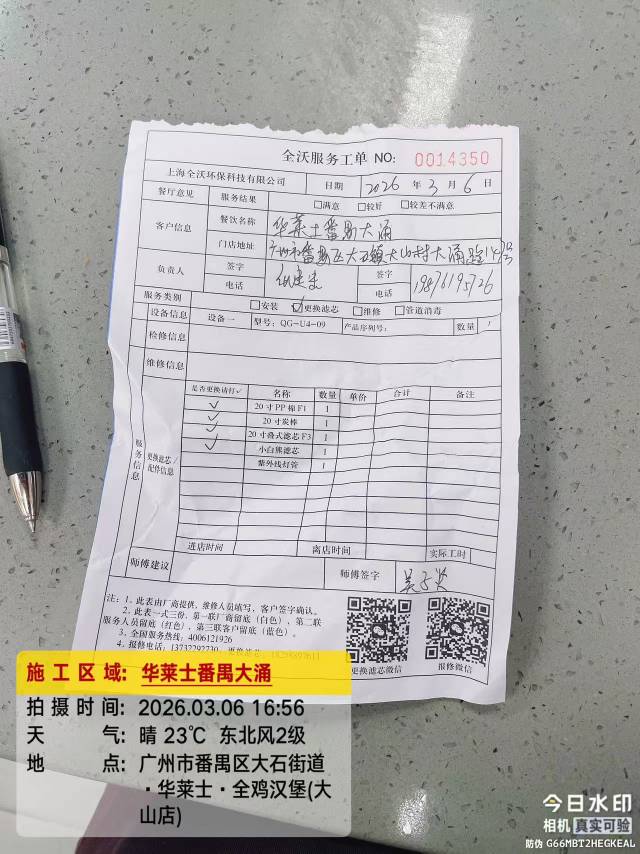 全沃服务工单 NO: 0014350
上海全沃环保科技有限公司 日期 2026年3月6日
餐厅意见 服务结果 □满意 □较好 □较差不满意
客户信息 餐饮名称 华莱士番禺大涌
门店地址 广州市番禺区大石镇大山村大涌路14号
负责人 签字 签字
电话 电话 19876195726
服务类别 □安装 ☑更换滤芯 □维修 □管道消毒
设备信息 设备一 型号: QG-U4-09 产品序列号: 数量 1
检修信息
维修信息
服务信息 更换滤芯/配件信息
是否更换请打✓ 名称 数量 单价 合计 备注
✓ 20寸PP棉F1 1
✓ 20寸炭棒 1
✓ 20寸叠式滤芯F3 1
✓ 小白熊滤芯 1
紫外线灯管 1
进店时间 离店时间 实际工时
师傅建议 师傅签字
注: 1、此表由厂商提供, 维修人员填写, 客户签字确认。
2、此表一式三份, 第一联厂商留底(白色)、第二联
服务人员留底(红色)、第三联客户留底(蓝色)。
3、全国服务热线: 4006121926
4、报修电话: 13732292730
更换滤芯微信 报修微信
施工区域: 华莱士番禺大涌
拍摄时间: 2026.03.06 16:56
天气: 晴 23℃ 东北风2级
地点: 广州市番禺区大石街道
·华莱士·全鸡汉堡(大
山店)
今日水印
相机 真实可验
防伪 G66MBT2HEGKEAL